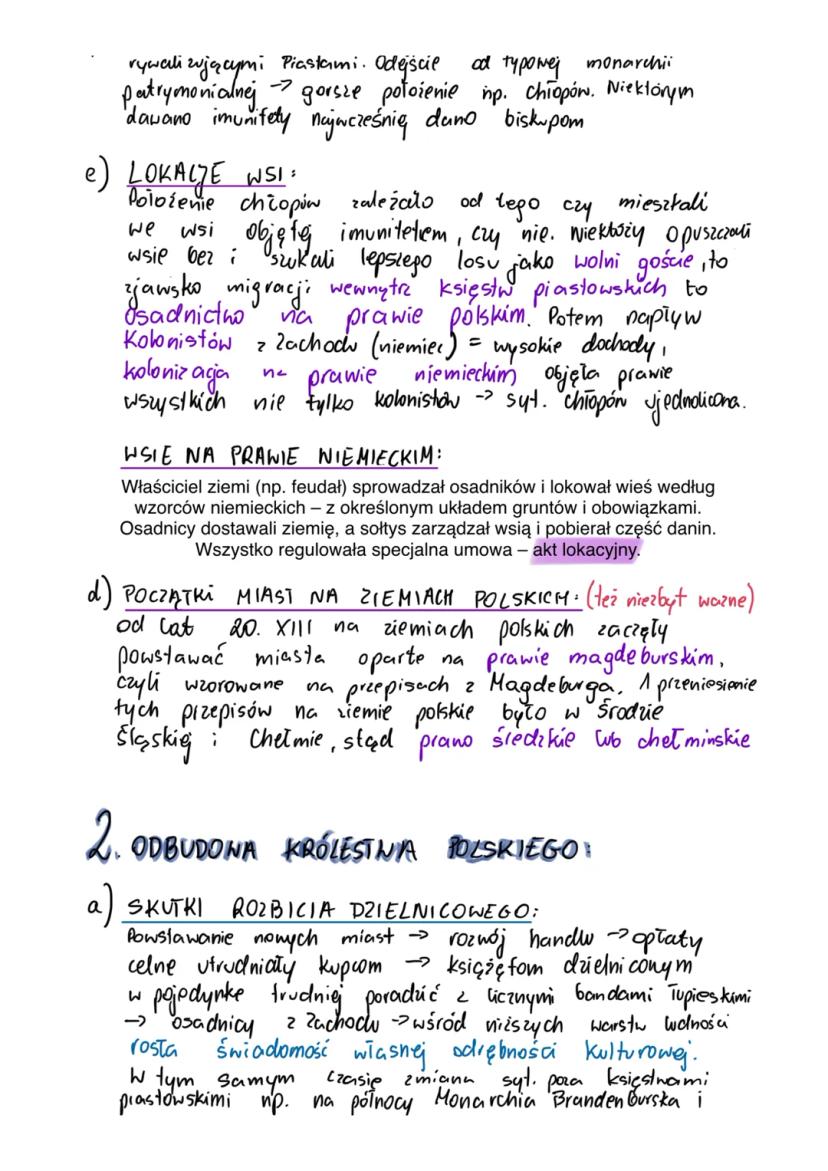 rywalizującymi Piastami. Odejście od typowej monarchii
patrymonialnej → gorsze położenie np. chłopów. Niektórym
dawano imunitety najwcześnią dano biskupom
e) LOKACJE WSI:
Położenie chłopów zależało od tego czy mieszkali
we wsi objętej imunitetem, czy nie. Niektórzy opuszczali
wsie bez i szukali lepszego losu jako wolni goście, to
zjawsko migracji wewnątrz księstw piastowskich to
osadnictwo na prawie polskim. Potem napływ
kolonistów z Zachodu (niemiec) = wysokie dochody,
kolonizacja na prawie niemieckim objęła prawie
wszystkich nie tylko kolonistów → syt. chłopów ujednolicona.
WSIE NA PRAWIE NIEMIECKIM:
Właściciel ziemi (np. feudał) sprowadzał osadników i lokował wieś według
wzorców niemieckich – z określonym układem gruntów i obowiązkami.
Osadnicy dostawali ziemię, a sołtys zarządzał wsią i pobierał część danin.
Wszystko regulowała specjalna umowa – akt lokacyjny.
d) POCZĄTKI MIAST NA ZIEMIACH POLSKICH: (też niezbyt ważne)
od lat 20. XIII na ziemiach polskich zaczęły
powstawać miasta oparte na prawie magdeburskim,
czyli wzorowane na przepisach z Magdeburga. 1 przeniesienie
tych przepisów na ziemie polskie było w Środzie
Śląskiej i Chełmie, stąd prawo średzkie lub chełmińskie
2. ODBUDOWA KRÓLESTWA POLSKIEGO:
a) SKUTKI ROZBICIA DZIELNICOWEGO:
Powstawanie nowych miast → rozwój handlu → opłaty
celne utrudniały kupcom → książętom dzielniconym
w pojedynkę trudniej poradzić z licznymi bandami łupieskimi
→ osadnicy z Zachodu → wśród niższych warstw ludności
rosła świadomość własnej odrębności kulturowej.
W tym samym czasie zmiana syt. poza księstwami
piastowskimi np. na północy Monarchia Brandenburska i